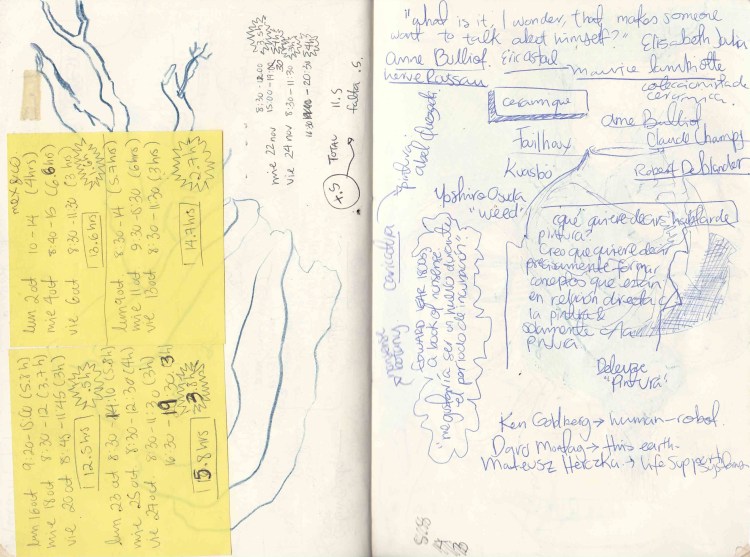 lun 2 oct 10-14 (4hrs)
mie 4 oct 8:40-15 (6.6hrs)
vie 6 oct 8:30-11:30 (3hrs)
13.6 hrs
lun 9 oct 8:30-14 (5.7hrs)
mie 11 oct 9:30-15:30 (6hrs)
vie 13 oct 8:30-11:30 (3hrs)
14.7hrs
lun 16 oct 9:20-15:00 (5.8h)
mie 18 oct 8:30-12 (3.7h)
vie 20 oct 8:45-11:45 (3h)
12.5hrs
lun 23 oct 8:30-14:10 (5.8h)
mie 25 oct 8:30-12:30 (4h)
vie 27 oct 8:30-11:30 (3h)
16:30-19:30 3h
15.8 hrs
8:30-12:00
mie 22 nov 15:00-19:00
vie 24 nov 8:30-11:30
TOTAL 11.5
falta .5
"What is it, I wonder, that makes someone
want to talk about himself?" Elisabeth Julia
Anne Bulliot. Eric Astoul
maurice Lambiotte
coleccionista de
cerámica.
ceramique
Anne Bulliot
Claude Champy
Failhax
Kuasbó
Robert Deblander
Yoshiro Osuda
"Weed"
pintura
caricatura
¿qué quiere decir hablar de
pintura?
Creo que quiere decir
precisamente formar
conceptos que están
en relación directa a
la pintura &
solamente a la
pintura
Deleuze
"Pintura"
nonsense
botany
EDWARD LEAR 1800s
a book of nonsense
"me gustaría ser un huevo durante
el período de incubación".
Ken Goldberg → human-robot.
David Monday → this earth.
Mateusz Herczka → Life Support Systems